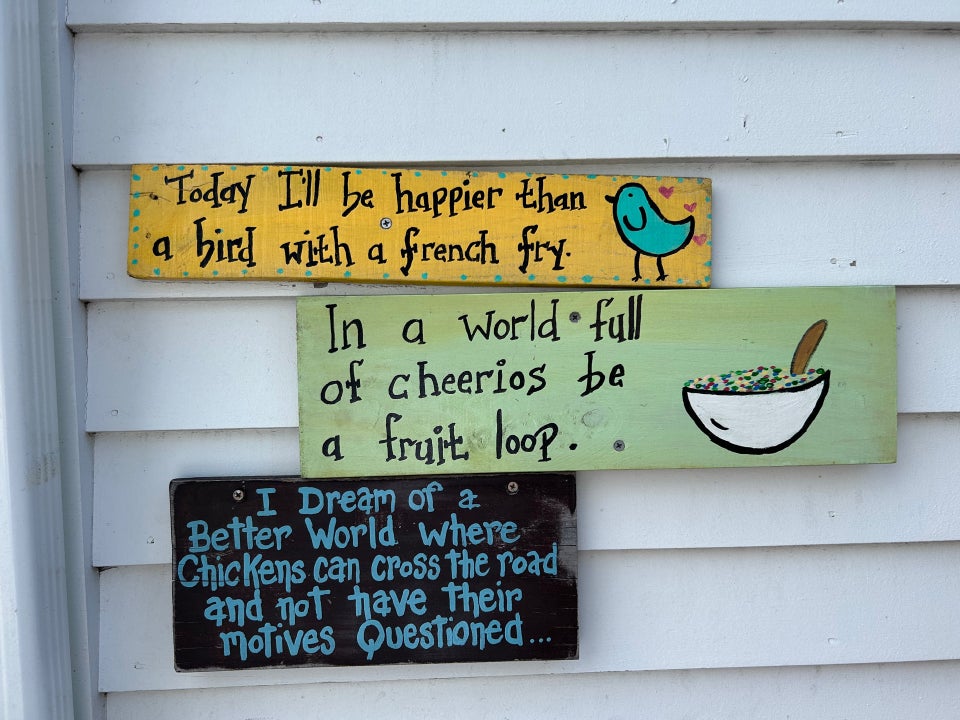 Today I'll be happier than
a bird with a french fry.
In a world full
of cheerios be
a fruit loop.
I Dream of a
Better World where
Chickens can cross the road
and not have their
motives Questioned...